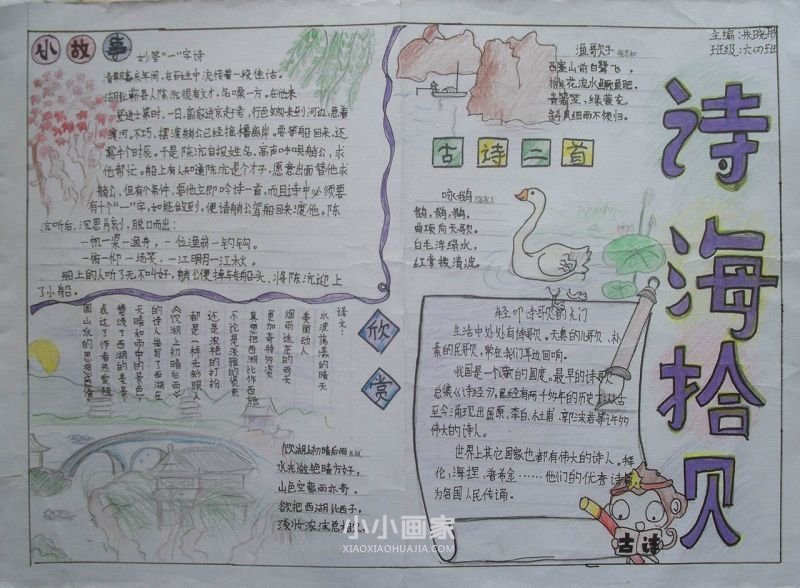 诗海拾贝
主编:朱晓彤
班级:六(四)班
小故事
妙答“一”字诗
清朝嘉庆年间,在百姓中流传着一段佳话。
湖北蕲县人陈沆很有文才,名噪一方。在他未
登进士第时,一日,前家进京走考,行色匆匆来到河边,急着
渡河。不巧,摆渡艄公已经摇橹离岸。要等船回来,还
需半个时辰。于是陈沆自报姓名,高声呼唤艄公,求
他帮忙。船上有人知道陈沆是个才子,愿意出面替他求
艄公,但有个条件,要他立即吟诗一首,而且诗中必须要
有十个“一”字,如能做到,便请艄公驾船回来渡他。陈
沆听后,沉思片刻,脱口而出:
一帆一桨一渔舟,一位渔翁一钓钩。
一俯一仰一场笑,一江明月一江秋。
船上的人听了无不叫好,艄公便掉转船头,将陈沆迎上
了小船。
渔歌子
西塞山前白鹭飞,
桃花流水鳜鱼肥。
青箬笠,绿蓑衣,
斜风细雨不须归。
古诗二首
咏鹅
鹅,鹅,鹅,
曲项向天歌。
白毛浮绿水,
红掌拨清波。
欣赏
译文:
水波荡漾的晴天
美丽动人
烟雨迷茫的雨天
更加奇特的姿
真想把西湖比作西施
不论是淡雅的装束
还是浓艳的打扮
都是一样光彩照人
《饮湖上初晴后雨》
的诗人描写了西湖在
天晴和雨中的景色
赞颂了西湖的美景
表达了作者热爱祖
国山水的思想感情
饮湖上初晴后雨
水光潋艳晴方好,
山色空蒙雨亦奇。
欲把西湖比西子,
淡妆浓沫总相宜。
轻叩诗歌的大门
生活中处处有诗歌。天真的儿歌、朴
素的民歌,常在我们耳边回响。
我国是一个诗的国度。最早的诗歌
总集《诗经》,已经有两千多年的历史了。从古
至今涌现出屈原、李白、杜甫、郭沫若等许多的
伟大的诗人。
世界上其它国家也都有伟大的诗人。拜
伦、海涅、普希金……他们的优秀诗篇,
为各国人民传诵。
古诗
小小画家
XIAOXIAOHUAJIA.COM